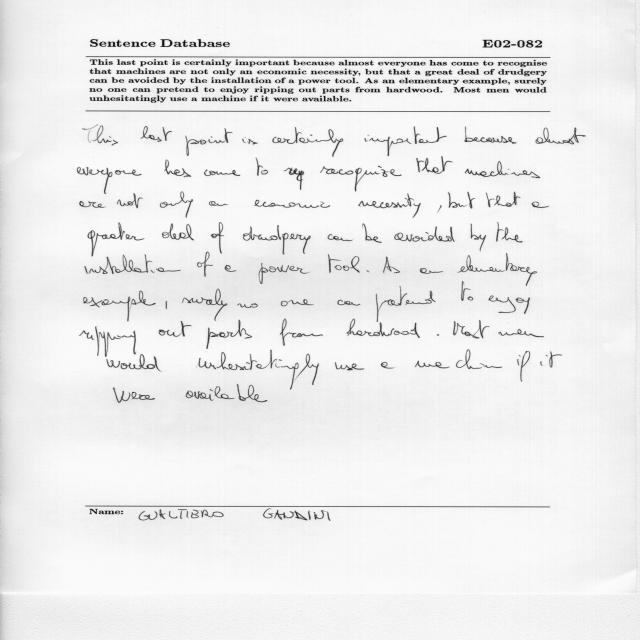 Sentence Database E02-082
This last point is certainly important because almost everyone has come to recognise
that machines are not only an economic necessity, but that a great deal of drudgery
can be avoided by the installation of a power tool. As an elementary example, surely
no one can pretend to enjoy ripping out parts from hardwood. Most men would
unhesitatingly use a machine if it were available.
This last point is certainly important because almost
everyone has come to recognize that machines
are not only an economic necessity, but that a
greater deal of drudgery can be avoided by the
installation of a power tool. As an elementary
example, surely no one can pretend to enjoy
ripping out parts from hardwood. Most men
would unhesitatingly use a machine if it
were available
Name: GUALTIERO GANDINI